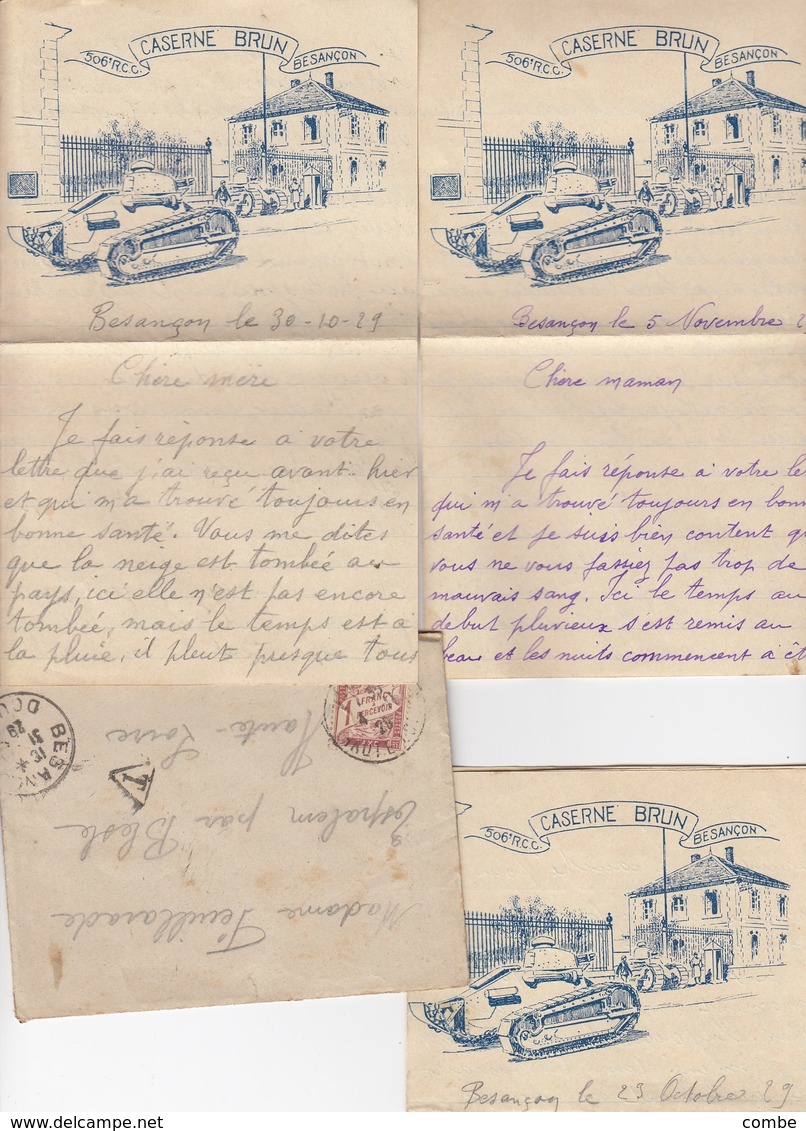 506e R.C.C.
CASERNE BRUN
BESANÇON
Besançon le 30-10-29
Chère mère
Je fais réponse a votre
lettre que j'ai reçu avant hier
et qui m'a trouvé toujours en
bonne santé. Vous me dites
que la neige est tombée au
pays, ici elle n'est pas encore
tombée, mais le temps est a
la pluie, il pleut presque tous
506e R.C.C.
CASERNE BRUN
BESANÇON
Besançon le 5 Novembre 2
Chère maman
Je fais réponse a votre le
qui m'a trouvé toujours en bonn
santé et je suis bien content q
vous ne vous fassiez pas trop de
mauvais sang. Ici le temps au
debut pluvieux s'est remis au
beau et les nuits commencent a êt
1 FRANC
A PERCEVOIR
T
BESAN
DOU
Madame Feuillarade
Espalem par Blesle
Haute-Loire
506e R.C.C.
CASERNE BRUN
BESANÇON
Besançon le 23 Octobre 29
combe